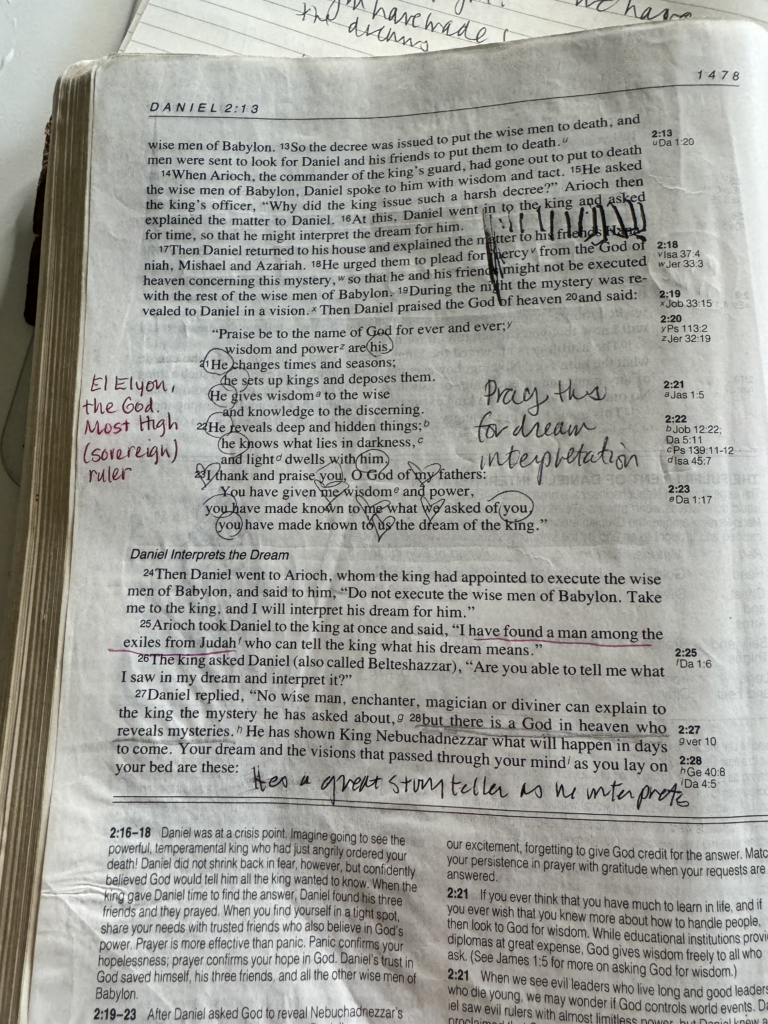 we have
have made
the dreams
1478
DANIEL 2:13
wise men of Babylon. 13So the decree was issued to put the wise men to death, and
men were sent to look for Daniel and his friends to put them to death.u
14When Arioch, the commander of the king's guard, had gone out to put to death
the wise men of Babylon, Daniel spoke to him with wisdom and tact. 15He asked
the king's officer, "Why did the king issue such a harsh decree?" Arioch then
explained the matter to Daniel. 16At this, Daniel went in to the king and asked
for time, so that he might interpret the dream for him.
17Then Daniel returned to his house and explained the matter to his friends Hana-
niah, Mishael and Azariah. 18He urged them to plead for mercyv from the God of
heaven concerning this mystery,w so that he and his friends might not be executed
with the rest of the wise men of Babylon. 19During the night the mystery was re-
vealed to Daniel in a vision.x Then Daniel praised the God of heaven 20and said:
"Praise be to the name of God for ever and ever;y
wisdom and powerz are his.
21He changes times and seasons;
he sets up kings and deposes them.
He gives wisdoma to the wise
and knowledge to the discerning.
22He reveals deep and hidden things;b
he knows what lies in darkness,c
and lightd dwells with him.
23I thank and praise you, O God of my fathers:
You have given me wisdome and power,
you have made known to me what we asked of you,
you have made known to us the dream of the king."
El Elyon,
the God.
Most High
(sovereign)
ruler
Pray this
for dream
interpretation
Daniel Interprets the Dream
24Then Daniel went to Arioch, whom the king had appointed to execute the wise
men of Babylon, and said to him, "Do not execute the wise men of Babylon. Take
me to the king, and I will interpret his dream for him."
25Arioch took Daniel to the king at once and said, "I have found a man among the
exiles from Judahf who can tell the king what his dream means."
26The king asked Daniel (also called Belteshazzar), "Are you able to tell me what
I saw in my dream and interpret it?"
27Daniel replied, "No wise man, enchanter, magician or diviner can explain to
the king the mystery he has asked about,g 28but there is a God in heaven who
reveals mysteries.h He has shown King Nebuchadnezzar what will happen in days
to come. Your dream and the visions that passed through your mindi as you lay on
your bed are these:
Hes a great story teller as he interprets
2:13
uDa 1:20
2:18
vIsa 37:4
wJer 33:3
2:19
xJob 33:15
2:20
yPs 113:2
zJer 32:19
2:21
aJas 1:5
2:22
bJob 12:22;
Da 5:11
cPs 139:11-12
dIsa 45:7
2:23
eDa 1:17
2:25
fDa 1:6
2:27
gver 10
2:28
hGe 40:8
iDa 4:5
2:16–18 Daniel was at a crisis point. Imagine going to see the
powerful, temperamental king who had just angrily ordered your
death! Daniel did not shrink back in fear, however, but confidently
believed God would tell him all the king wanted to know. When the
king gave Daniel time to find the answer, Daniel found his three
friends and they prayed. When you find yourself in a tight spot,
share your needs with trusted friends who also believe in God's
power. Prayer is more effective than panic. Panic confirms your
hopelessness; prayer confirms your hope in God. Daniel's trust in
God saved himself, his three friends, and all the other wise men of
Babylon.
2:19–23 After Daniel asked God to reveal Nebuchadnezzar's
our excitement, forgetting to give God credit for the answer. Matc
your persistence in prayer with gratitude when your requests are
answered.
2:21 If you ever think that you have much to learn in life, and if
you ever wish that you knew more about how to handle people,
then look to God for wisdom. While educational institutions provi
diplomas at great expense, God gives wisdom freely to all who
ask. (See James 1:5 for more on asking God for wisdom.)
2:21 When we see evil leaders who live long and good leaders
who die young, we may wonder if God controls world events. Da
iel saw evil rulers with almost limitless power, but Daniel knew a